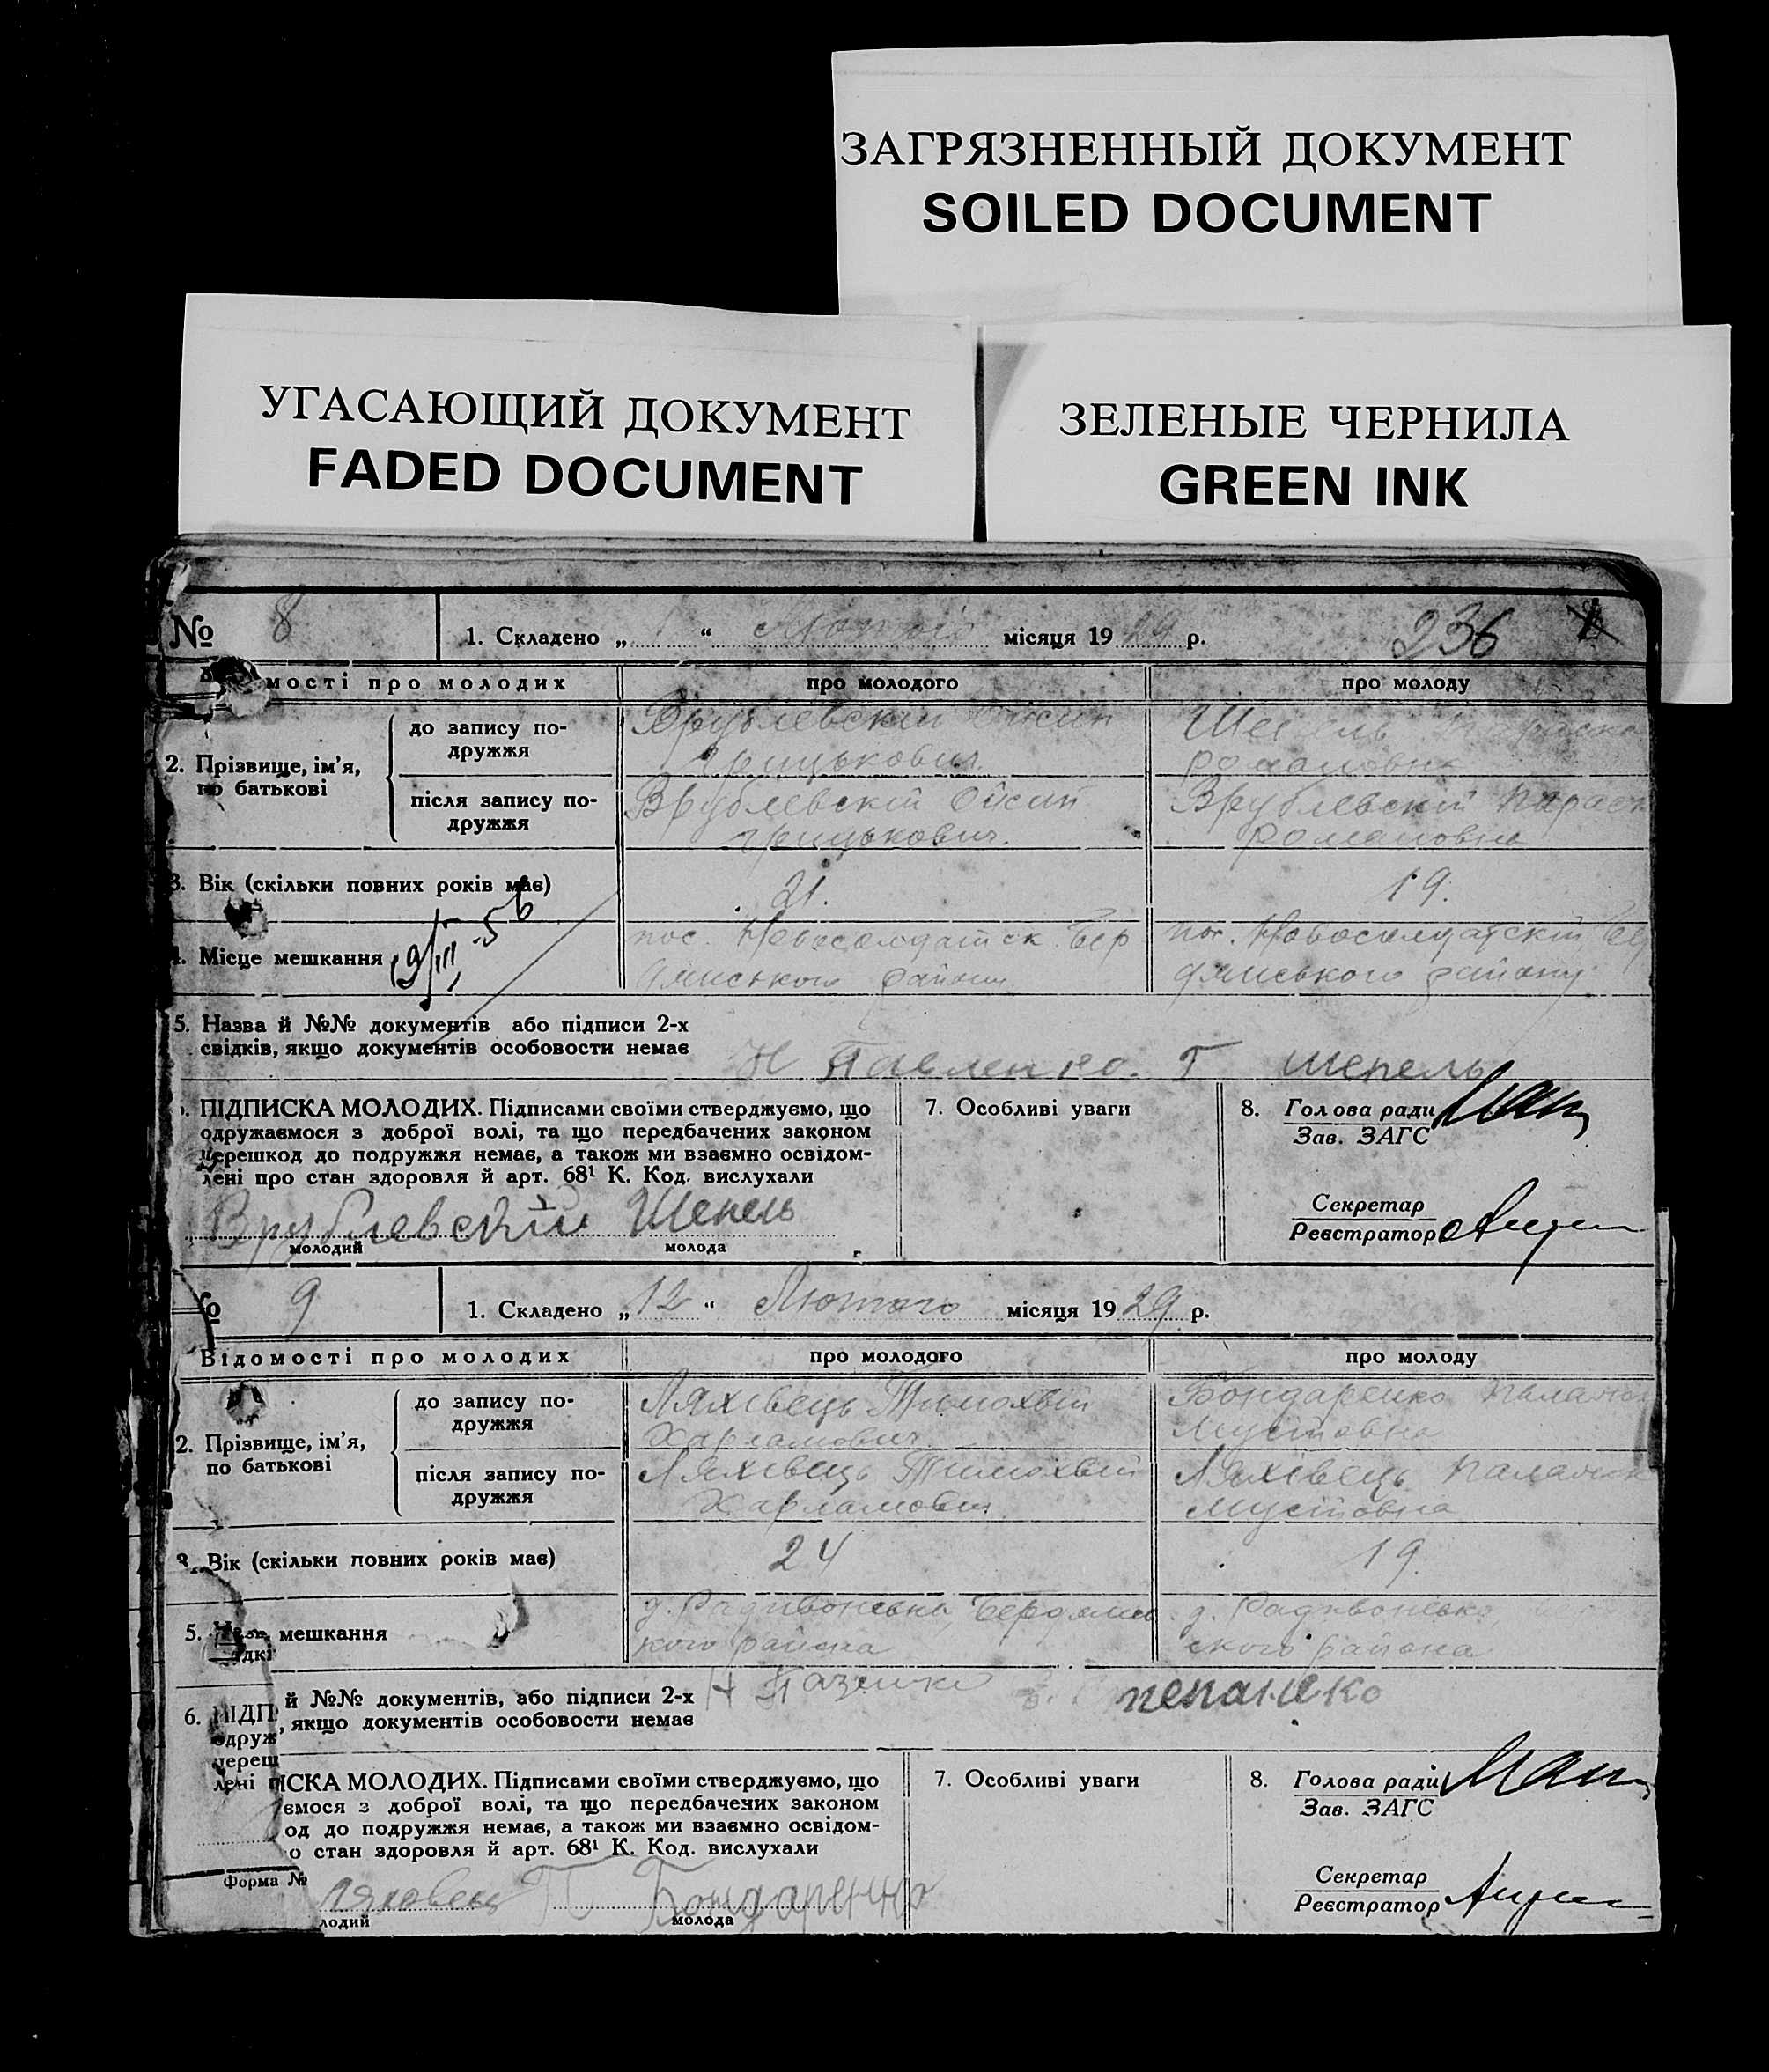 ЗАГРЯЗНЕННЫЙ ДОКУМЕНТ
SOILED DOCUMENT
УГАСАЮЩИЙ ДОКУМЕНТ
FADED DOCUMENT
ЗЕЛЕНЫЕ ЧЕРНИЛА
GREEN INK
№ 8
1. Складено „ “ місяця 1929 р.
236
мості про молодих
про молодого
про молоду
2. Прізвище, ім’я,
по батькові
до запису по-
дружжя
Врублевскій
Грицькович
Романовна
після запису по-
дружжя
Врублевскій
Грицькович.
Врублевскій Параск
Романовна
3. Вік (скільки повних років має)
21.
19.
4. Місце мешкання
пос. Новосолдатск. Бер
дянського району
пос. Новосолдатскій Бер
дянського району
5. Назва й №№ документів або підписи 2-х
свідків, якщо документів особовости немає
Н. Павленко. Г Шепель
ПІДПИСКА МОЛОДИХ. Підписами своїми стверджуємо, що
одружаємося з доброї волі, та що передбачених законом
перешкод до подружжя немає, а також ми взаємно освідом-
лені про стан здоровля й арт. 68¹ К. Код. вислухали
Врублевскій Шепель
молодий
молода
7. Особливі уваги
8. Голова ради
Зав. ЗАГС
Секретар
Реєстратор
№ 9
1. Складено „12“ Лютого місяця 1929 р.
Відомості про молодих
про молодого
про молоду
2. Прізвище, ім’я,
по батькові
до запису по-
дружжя
Ляхівець Тимохвій
Харламович
Бондаренко
після запису по-
дружжя
Ляхівець Тимохвій
Харламович
Ляхівець
3. Вік (скільки повних років має)
24
19.
5. мешкання
дкі
кого района
ского района
й №№ документів, або підписи 2-х
, якщо документів особовости немає
6. ПІДП
одруж
переш
лені п
ИСКА МОЛОДИХ. Підписами своїми стверджуємо, що
ємося з доброї волі, та що передбачених законом
од до подружжя немає, а також ми взаємно освідом-
о стан здоровля й арт. 68¹ К. Код. вислухали
Форма №
Бондаренко
лодий
молода
7. Особливі уваги
8. Голова ради
Зав. ЗАГС
Секретар
Реєстратор